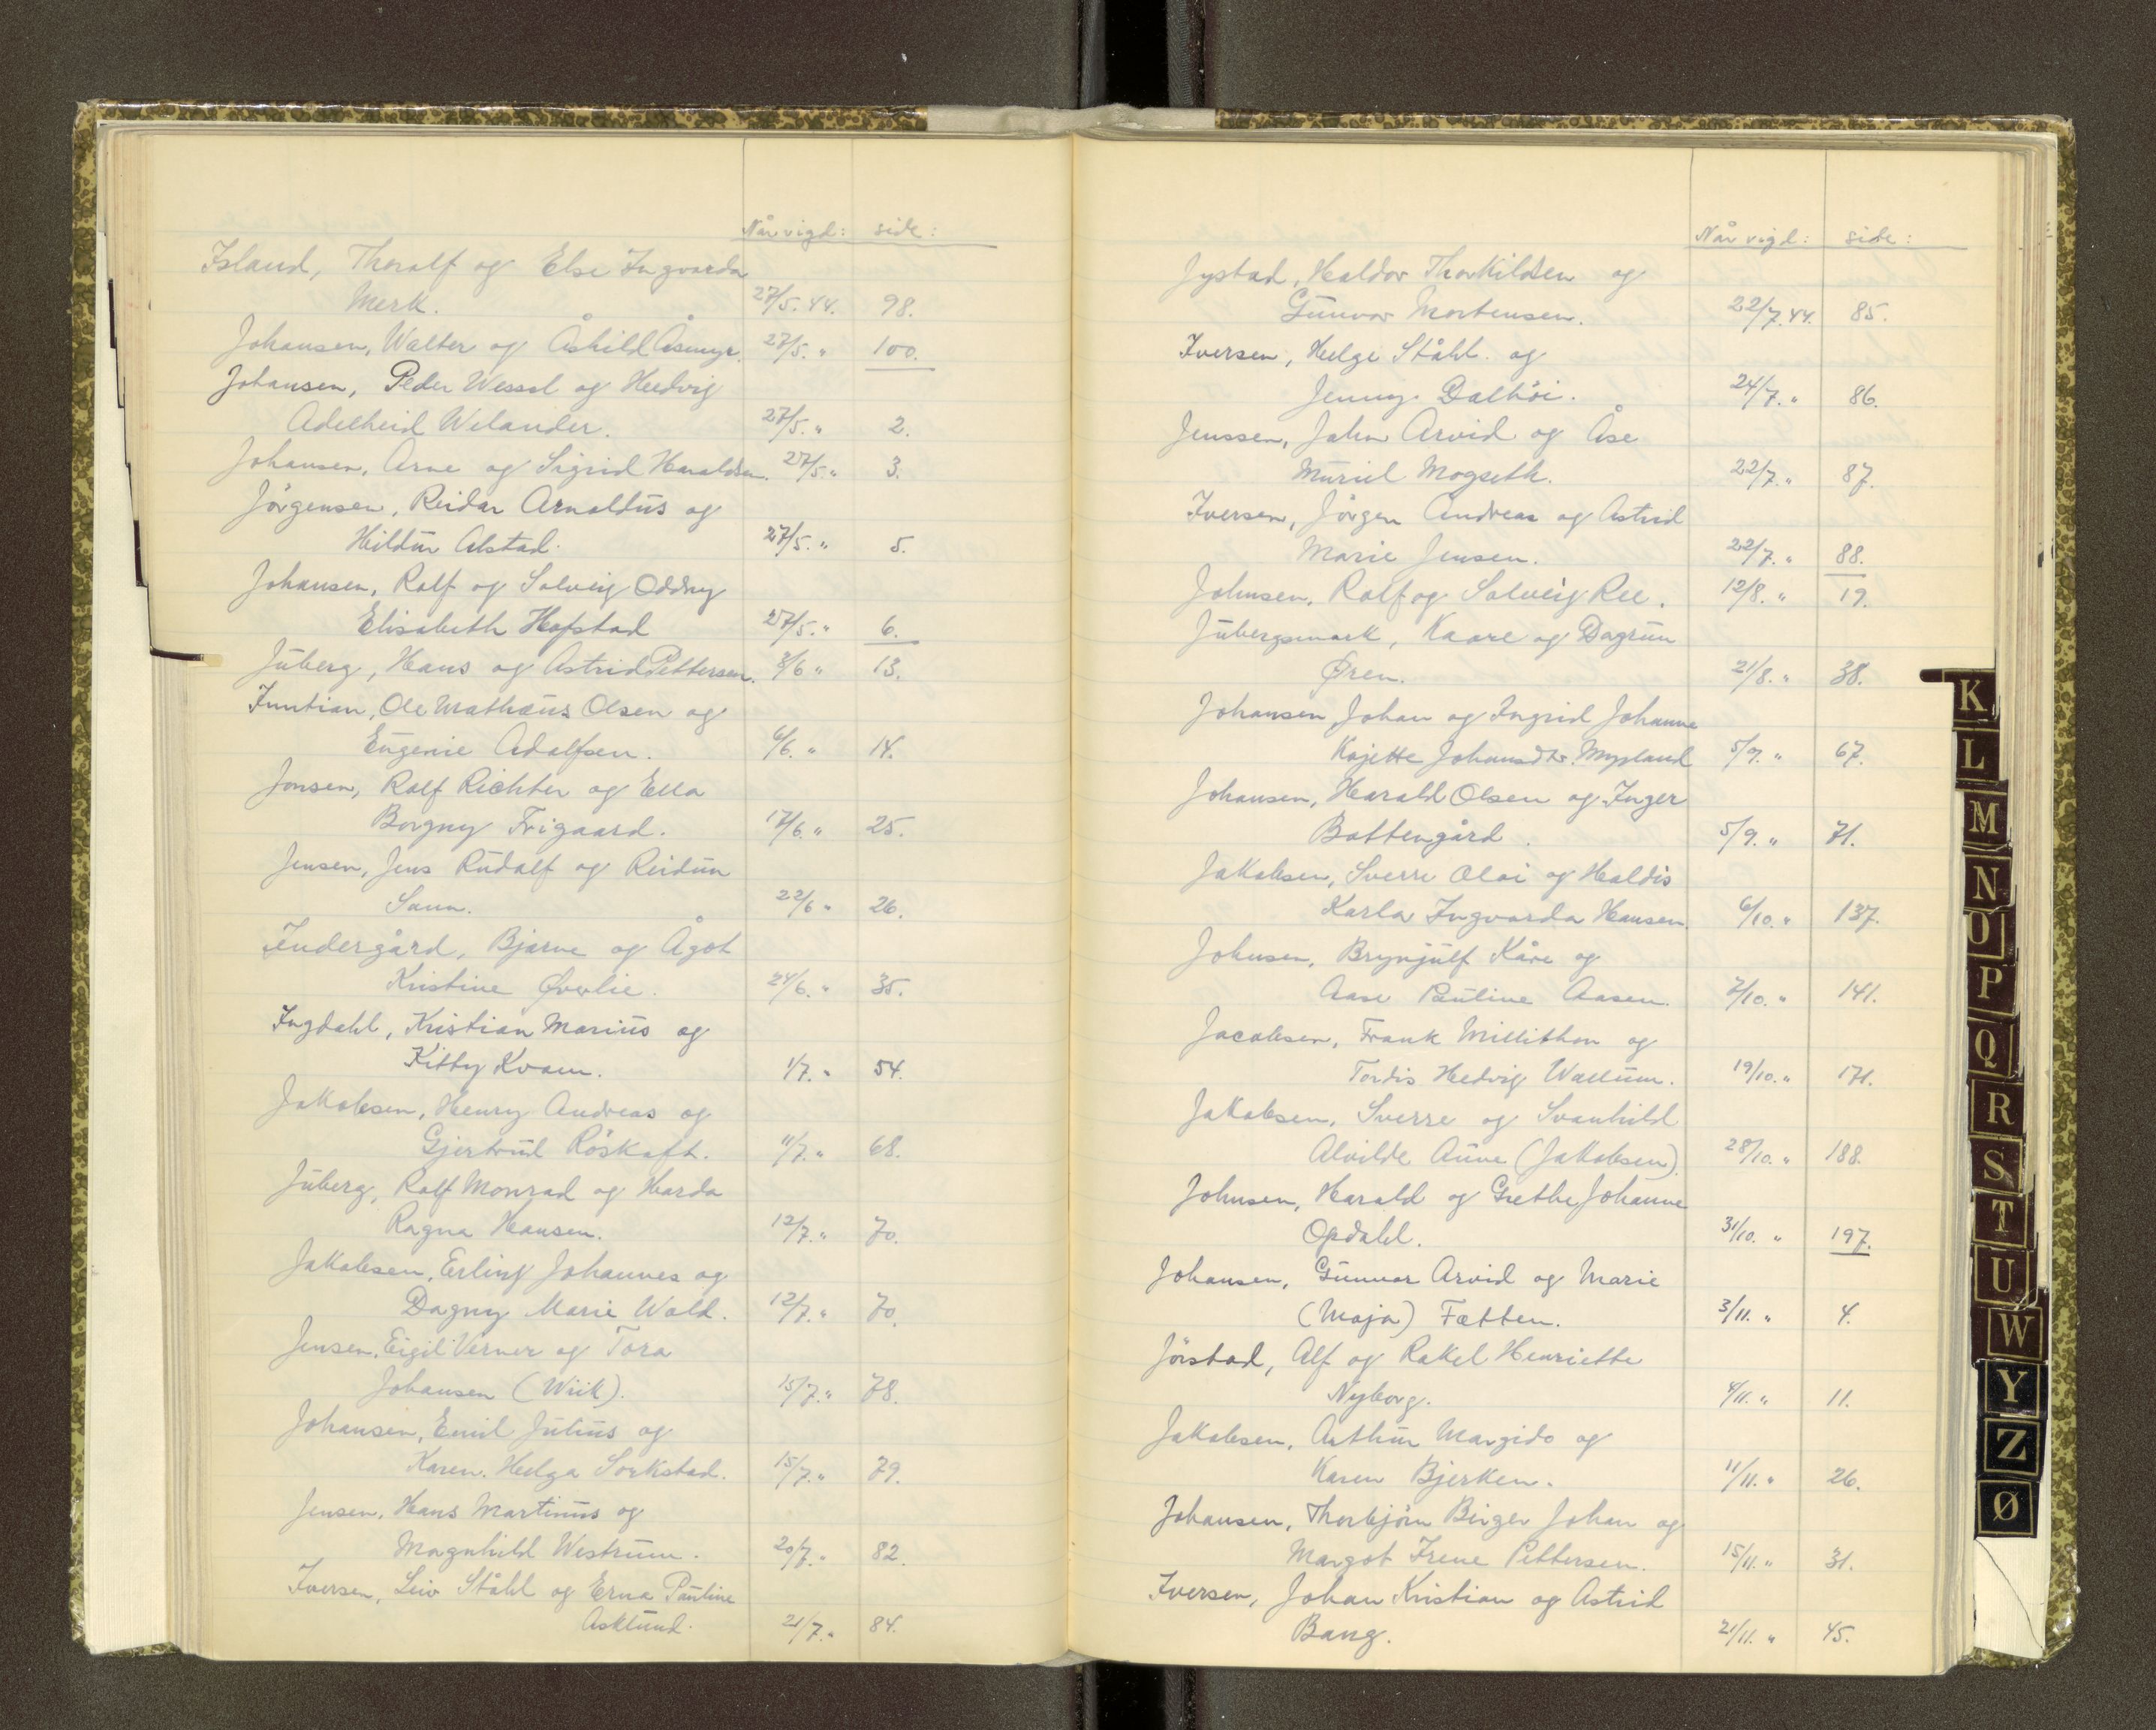 Når vigd: side:
Island, Thoralf og Else Ingvarda
Merk. 27/5. 44. 98.
Johansen, Walter og Åshild Åsmyr. 27/5. " 100.
Johansen, Peder Wessel og Hedvig
Adelheid Welander. 27/5. " 2.
Johansen, Arne og Sigrid Haraldsen. 27/5. " 3.
Jörgensen, Reidar Arnoldus og
Hildur Alstad. 27/5. " 5.
Johansen, Rolf og Solveig Oddny
Elisabeth Hofstad 27/5. " 6.
Juberg, Hans og Astrid Pettersen. 3/6 " 13.
Inntian, Ole Mathæus Olsen og
Eugenie Adolfsen. 6/6. " 14.
Jonsen, Rolf Richter og Ella
Borgny Frigaard. 17/6. " 25.
Jensen, Jens Rudolf og Reidun
Saun. 22/6 " 26.
Indergård, Bjarne og Ågot
Kristine Øverlie. 24/6. " 35.
Ingdahl, Kristian Marius og
Kitty Kvam. 1/7. " 54.
Jakobsen, Henry Andreas og
Gjertrud Röskaft. 11/7. " 68.
Juberg, Rolf Monrad og Harda
Ragna Hansen. 12/7. " 70.
Jakobsen, Erling Johannes og
Dagny Marie Wold. 12/7. " 70.
Jensen, Eigil Verner og Tora
Johansen (Wiik). 15/7. " 78.
Johansen, Emil Julius og
Karen. Helga Sorkstad. 15/7. " 79.
Jensen, Hans Martinus og
Magnhild Westrum. 20/7. " 82.
Iversen, Leiv Ståhl og Erna Pauline
Asklund. 21/7. " 84.
Når vigd: side:
Jystad, Haldor Thorkildsen og
Gunvor Mortensen. 22/7. 44. 85.
Iversen, Helge Ståhl. og
Jenny Dalhöi. 24/7. " 86.
Jenssen, John Arvid og Åse
Muriel Mogseth. 22/7. " 87.
Iversen, Jörgen Andreas og Astrid
Marie Jensen. 22/7. " 88.
Johnsen, Rolf og Solveig Ree. 12/8. " 19.
Jubergsmark, Kaare og Dagrun
Øren. 21/8. " 38.
Johansen, Johan og Ingrid Johanne
Kajette Johansdtr. Myrland 5/9. " 67.
Johansen, Harald Olsen og Inger
Bottengård. 5/9. " 71.
Jakobsen, Sverre Olai og Haldis
Karla Ingvarda Hansen. 6/10. " 137.
Johnsen, Brynjulf Kåre og
Aase Pauline Aasen. 7/10. " 141.
Jacobsen, Frank Millithon og
Tordis Hedvig Wallum. 19/10. " 171.
Jakobsen, Sverre og Svanhild
Alvilde Aune (Jakobsen). 28/10. " 188.
Johnsen, Harald og Grethe Johanne
Opdahl. 31/10. " 197.
Johansen, Gunnar Arvid og Marie
(Maja) Fætten. 3/11. " 4.
Jörstad, Alf og Rakel Henriette
Nyborg. 4/11. " 11.
Jakobsen, Arthur Margido og
Karen Bjerken. 11/11. " 26.
Johansen, Thorbjörn Birger Johan og
Margot Irene Pettersen. 15/11. " 31.
Iversen, Johan Kristian og Astrid
Bang. 21/11. " 45.
K
L
M
N
O
P
Q
R
S
T
U
W
Y
Z
Ø